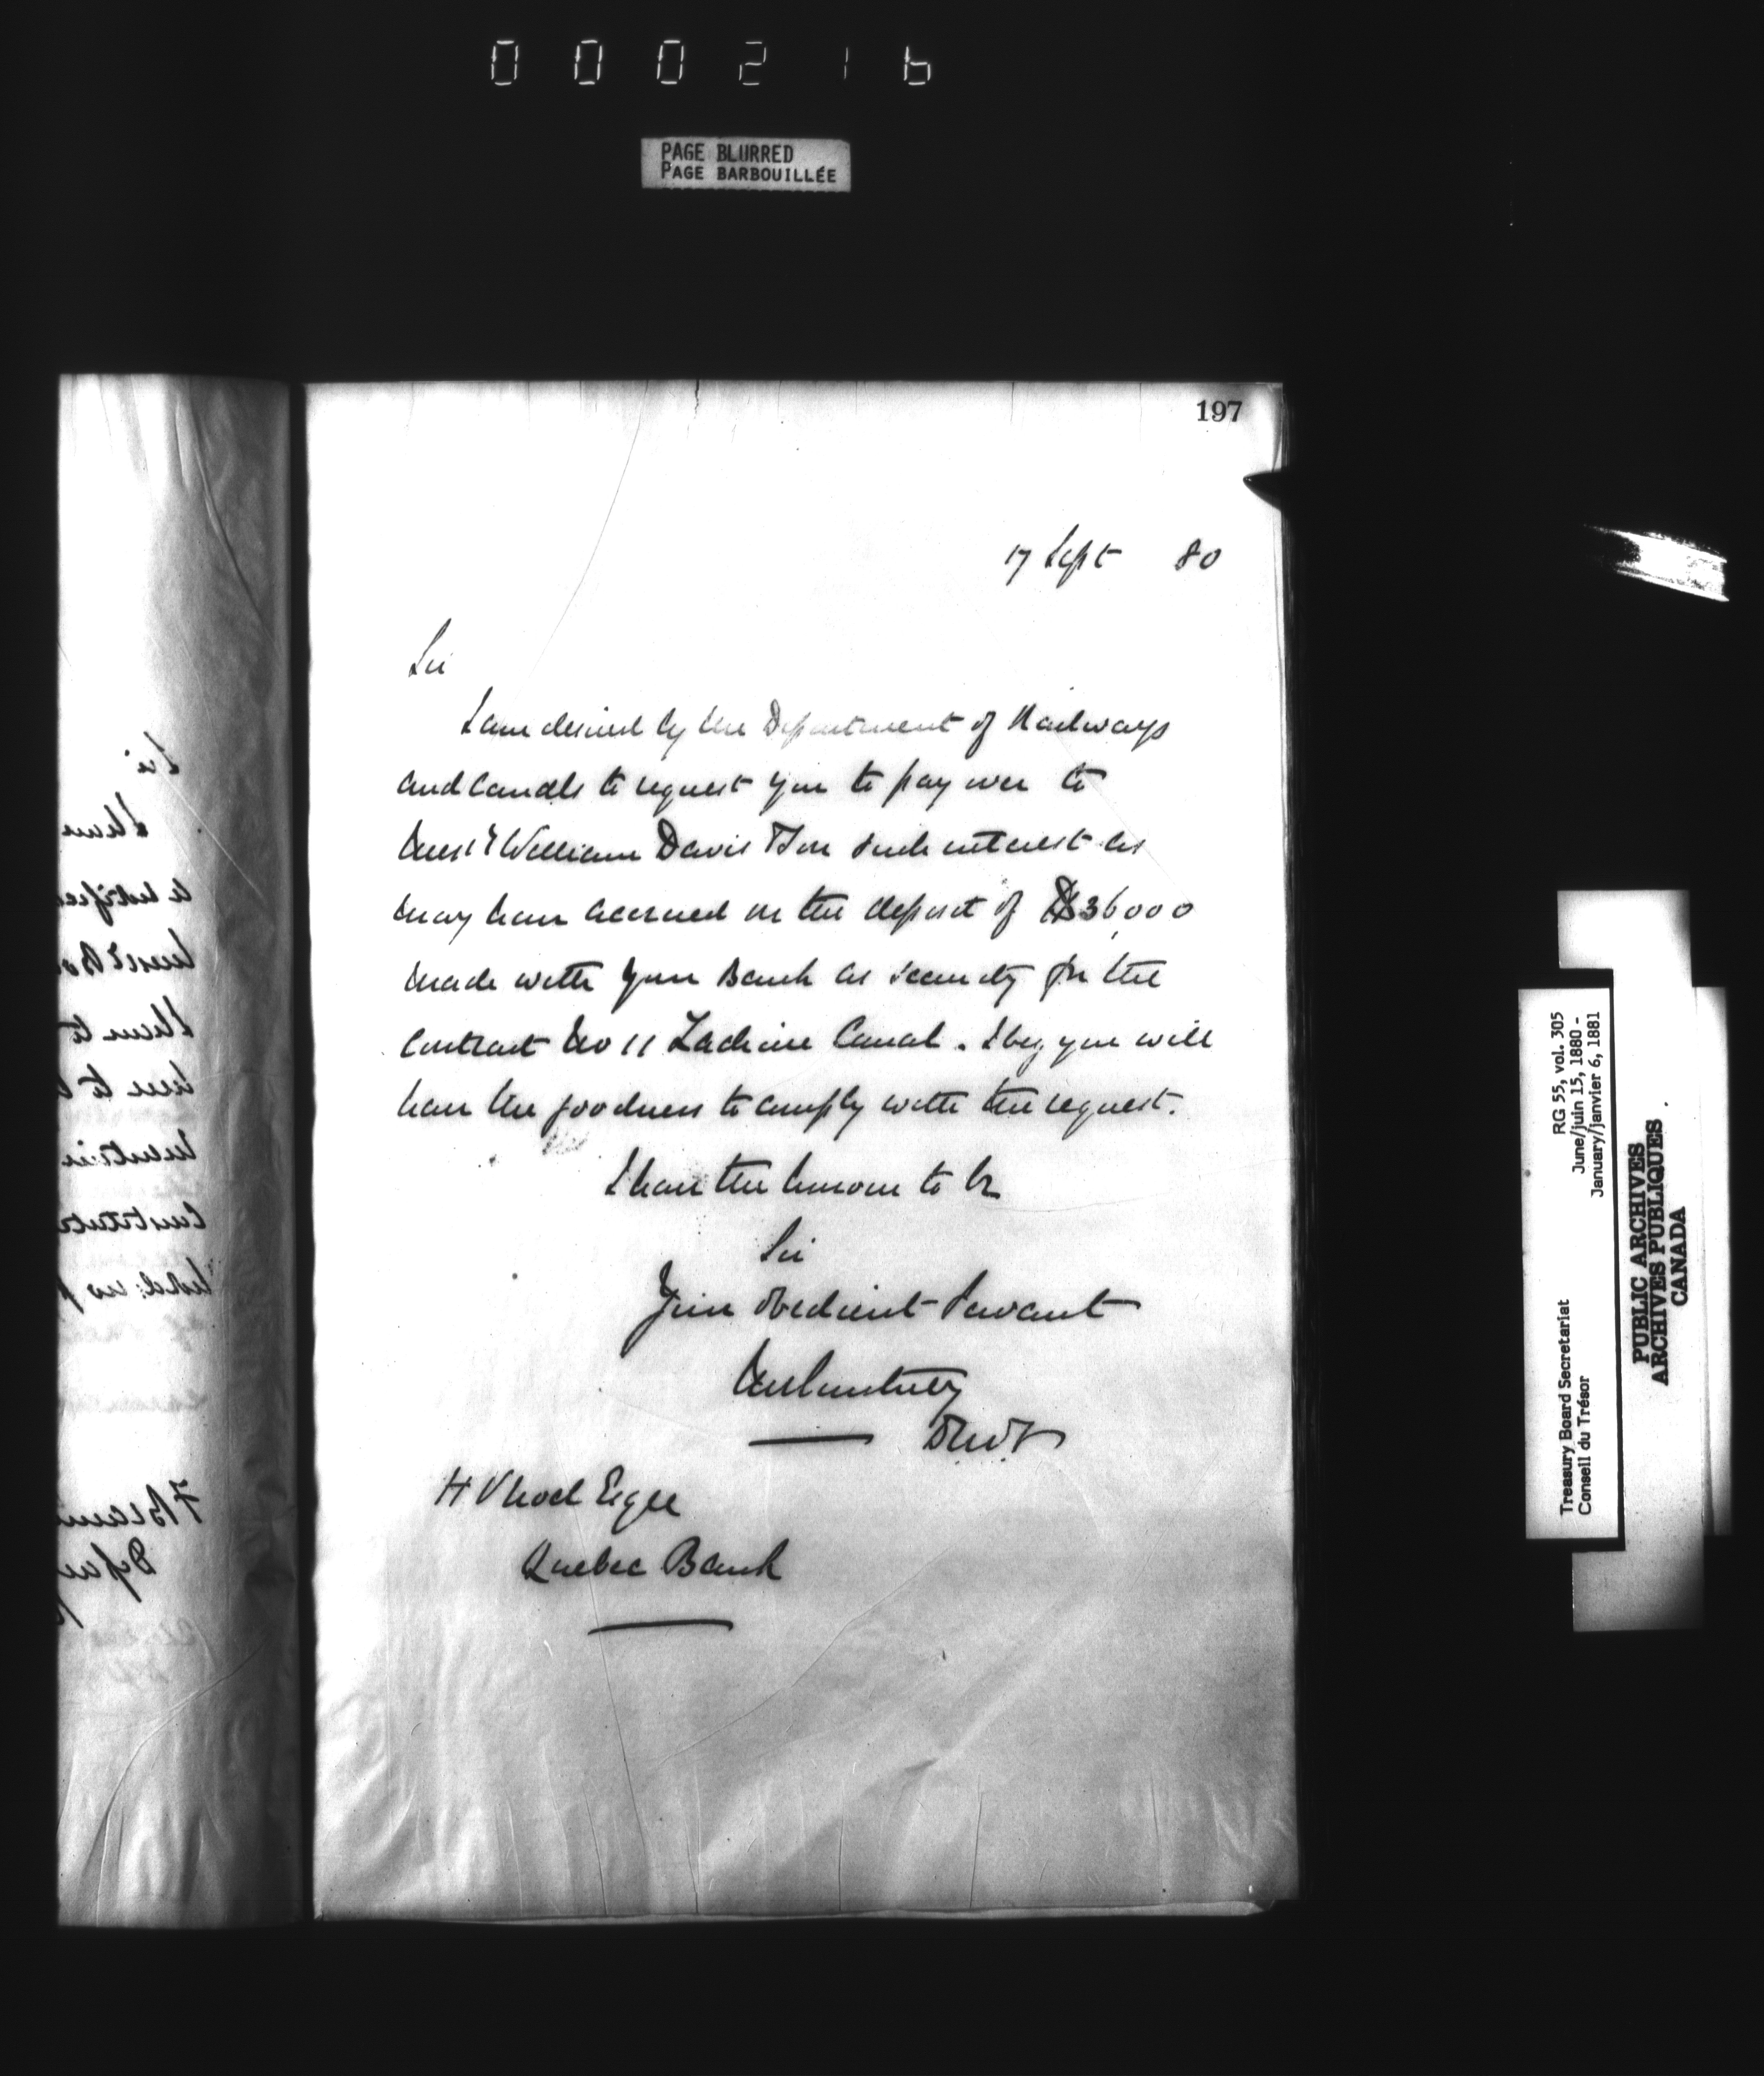 000216
PAGE BLURRED
PAGE BARBOUILLÉE
197
17 Sept 80
Sir
I am desired by the Department of Railways
and Canals to request you to pay over to
Mess.rs William Davis & Son such interest as
may have accrued on the deposit of $36,000
made with your Bank as security for the
contract No 11 Lachine Canal. I beg you will
have the goodness to comply with the request.
I have the honour to be
Sir
Your obedient Servant
JM Courtney
H V Noel Esqre
Quebec Bank
RG 55, vol. 305
June/juin 15, 1880 -
January/janvier 6, 1881
Treasury Board Secretariat
Conseil du Trésor
PUBLIC ARCHIVES
ARCHIVES PUBLIQUES
CANADA